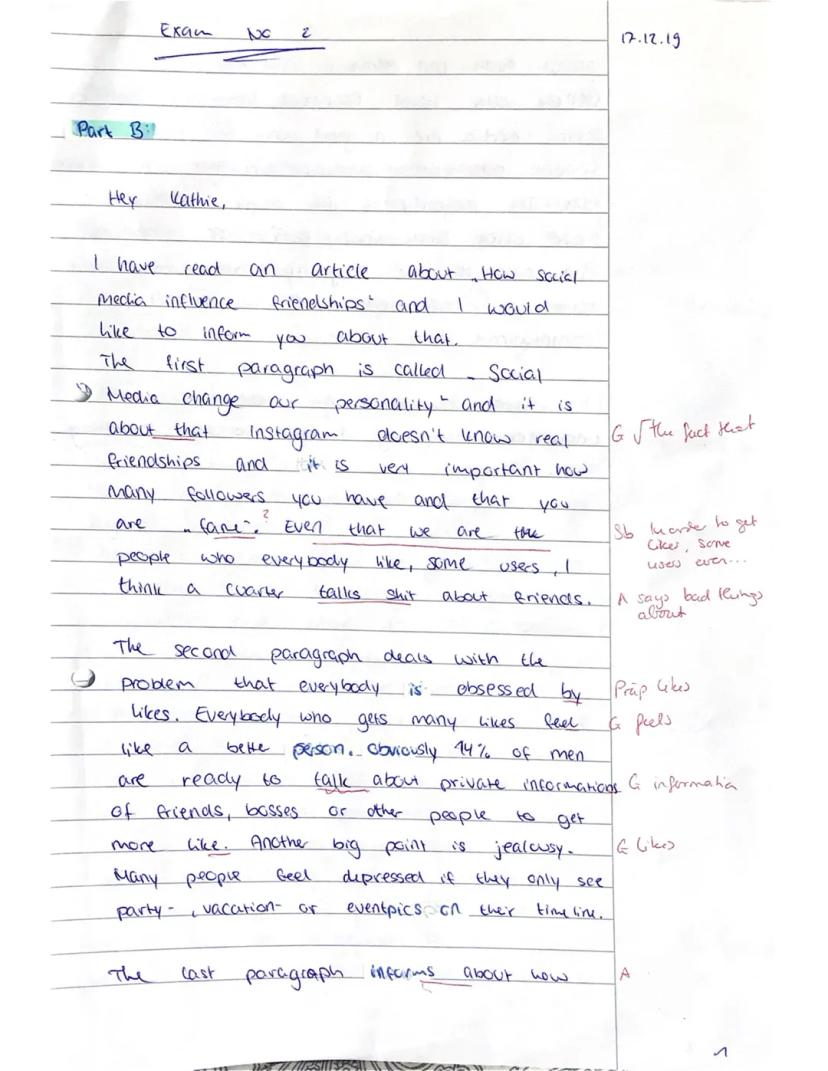 Exam No 2
17.12.19
Part B:
Hey Kathie,
I have read an article about „How social
Media influence friendships" and I would
like to inform you about that.
The first paragraph is called „Social
Media change our personality" and it is
about that Instagram doesn't know real
G √ the fact that
friendships and it is very important how
many followers you have and that you
are „fame". ? Even that we are the
Sb In order to get
likes, some
users even...
people who everybody like, some users, I
think a cuarter talks shit about friends.
A says bad things
about
The second paragraph deals with the
problem that everybody is obsessed by
Präp likes
likes. Everybody who gets many likes feel
G feels
like a bette person. Obviously 14% of men
are ready to talk about private informations
G information
of friends, bosses or other people to get
more like. Another big point is jealousy.
G likes
Many people feel depressed if they only see
party-, vacation- or eventpics on their timeline.
The last paragraph informs about how
A
1